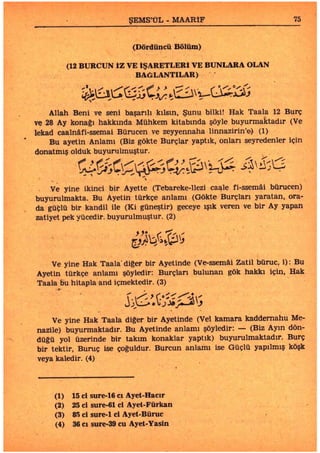 ŞEMS'ÜL - MAARİF 75
(Dördüncü Bölüm)
(12 BURCUN İZ VE İŞARETLERİ VE BUNLARA OLAN
BAĞLANTILAR)
Allah Beni ve seni başarılı kılsın, Şunu bilki! Hak Taala 12 Burç
ve 28 Ay konağı hakkında Mühkem kitabında şöyle buyurmaktadır (Ve
lekad caalnâfi-ssemai Bürucen ve zeyyennaha linnazirin'e) (1)
Bu ayetin Anlamı (Biz gökte Burçlar yaptık, onları seyredenler için
donatmış olduk buyurulmuştur.
Ve yine ikinci bir Ayette (Tebareke-llezi caale fi-ssemâi bürucen)
buyurulmakta. Bu Ayetin türkçe anlamı (Gökte Burçları yaratan, ora-
da güçlü bir kandil ile (Ki güneştir) geceye ışık veren ve bir Ay yapan
zatiyet pek yücedir. buyurulmuştur. (2)
Ve yine Hak Taala diğer bir Ayetinde (Ve-ssemâi Zatil büruc, i): Bu
Ayetin türkçe anlamı şöyledir: Burçları bulunan gök hakkı için, Hak
Taala bu hitapla and içmektedir. (3)
Ve yine Hak Taala diğer bir Ayetinde (Vel kamara kaddernahu Me-
nazile) buyurmaktadır. Bu Ayetinde anlamı şöyledir: — (Biz Ayın dön-
düğü yol üzerinde bir takım konaklar yaptık) buyurulmaktadır. Burç
bir tektir, Buruç ise çoğuldur. Burcun anlamı ise Güçlü yapılmış köşk
veya kaledir. (4)
(1) 15 ci sure-16 cı Ayet-Hacır
(2) 25 ci sure-61 ci Ayet-Fürkan
(3) 85 ci sure-1 ci Ayet-Büruc
(4) 36 cı sure-39 cu Ayet-Yasin